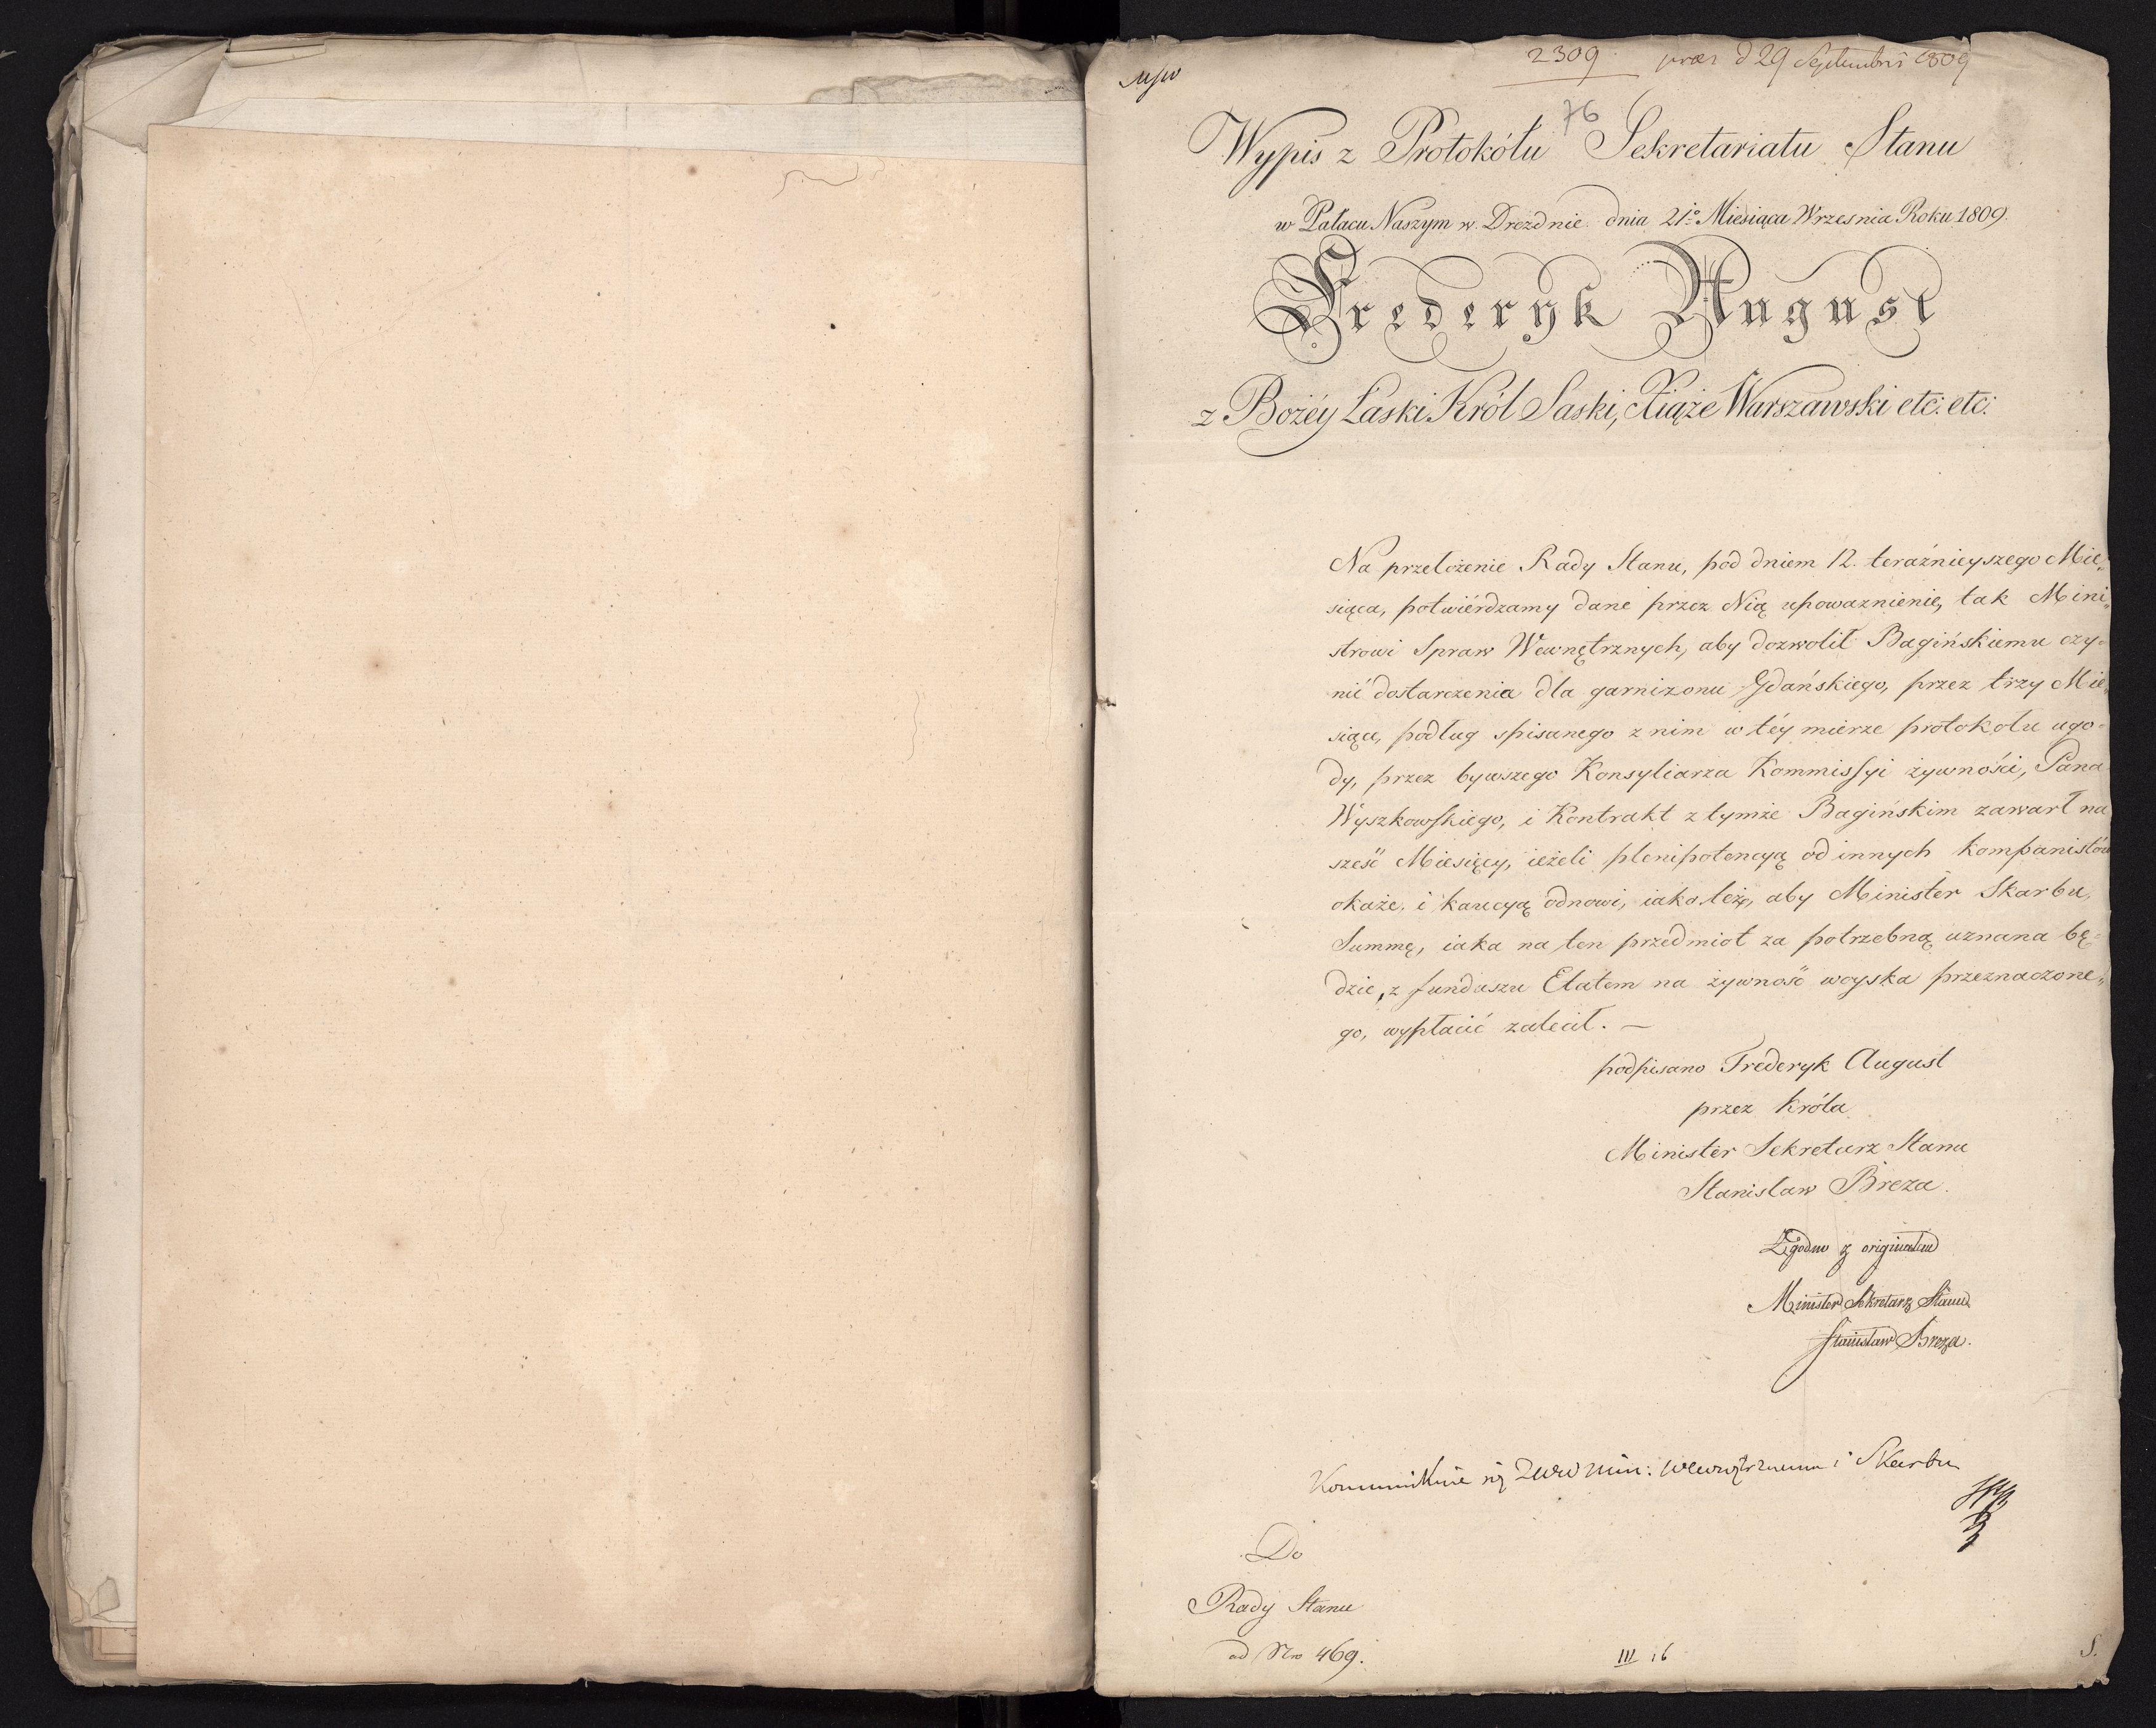 2309. praes d 29 Septembris 1809
76
Wypis z Protokółu Sekretariatu Stanu
w Pałacu Naszym w Dreźdnie dnia 21º Miesiąca Wrzesnia Roku 1809.
Frederyk August
z Bożéy Łaski Król Saski, Xiąże Warszawski etc: etc:
Na przełożenie Rady Stanu, pod dniem 12. teraźnieyszego Mie„
siąca, potwiérdzamy dane przez Nią upoważnienie, tak Mini„
strowi Spraw Wewnętrznych, aby dozwolił Bagińskiemu czy=
nić dostarczenia dla garnizonu Gdańskiego, przez trzy Mie„
siące, podług spisanego z nim w téy mierze protokołu ugo=
dy, przez bywszego Konsyliarza Kommissyi żywności, Pana
Wyszkowskiego, i Kontrakt z tymże Bagińskim zawarł na
sześć Miesięcy, ieżeli plenipotencyą od innych kompanistów
okaże i kaucyą odnowi, iako też, aby Minister Skarbu,
Summę, iaka na ten przedmiot za potrzebną uznana bę=
dzie, z funduszu Etatem na żywność woyska przeznaczone„
go, wypłacić zalecił. —
podpisano Frederyk August
przez Króla
Minister Sekretarz Stanu
Stanisław Breza.
Zgodno z originałem
Minister Sekretarz Stanu
Stanisław Breza.
Kommunikuie się Min: Wewnętrznemu i Skarbu
Do
Rady Stanu
ad Nro 469.
III 16
S.